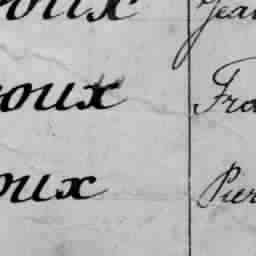 oux Jean
oux Fra
oux Pier